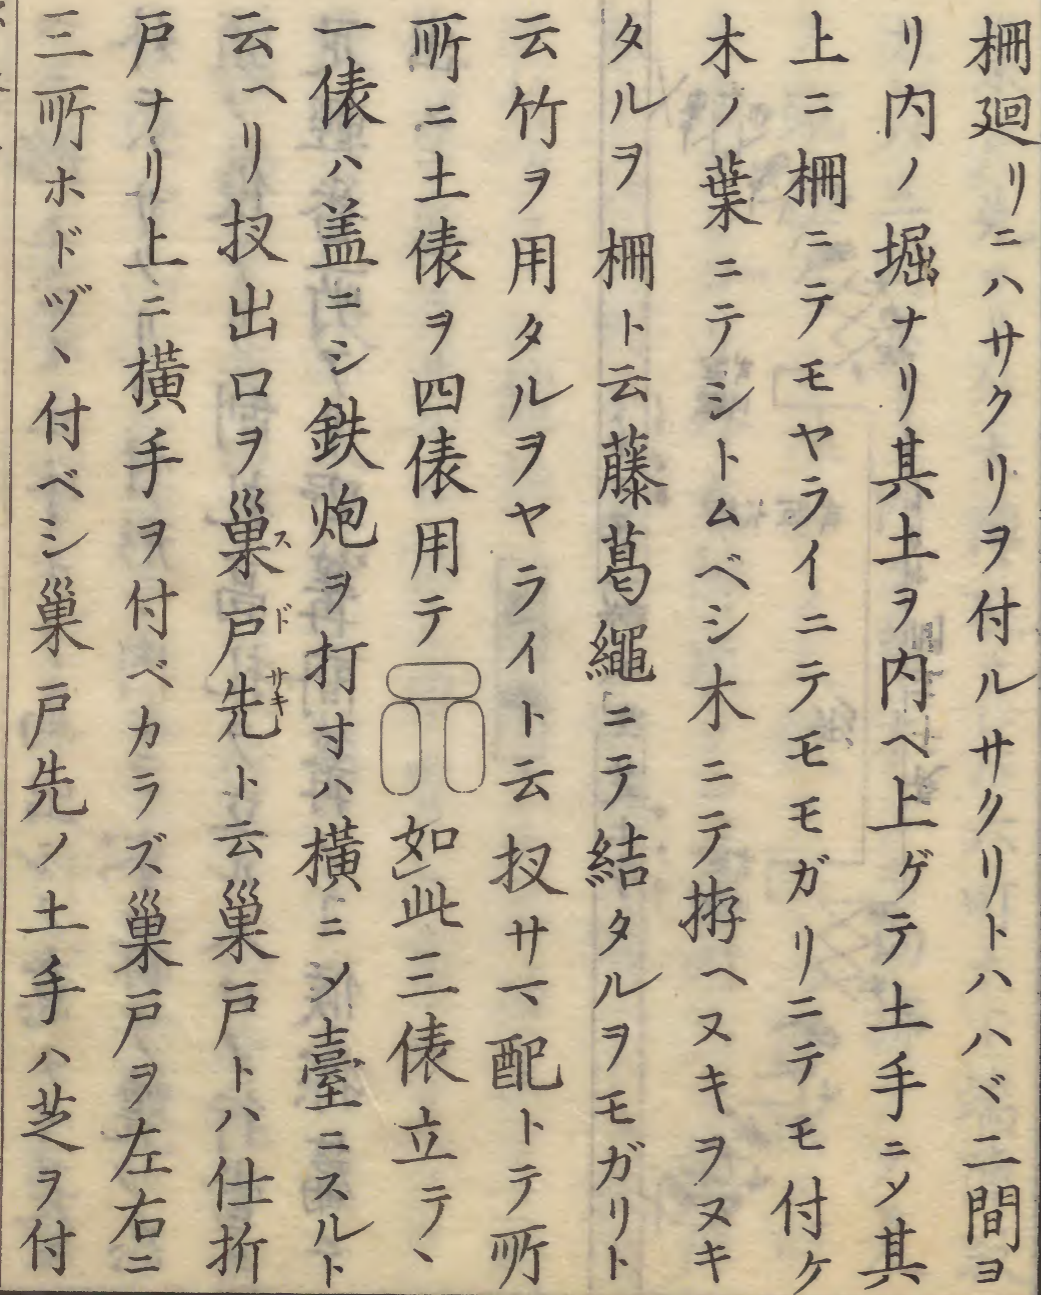 柵廻リニハサクリヲ付ルサクリトハハヾ二間ヨ
リ内ノ堀ナリ其土ヲ内ヘ上ゲテ土手ニメ其
上ニ柵ニテモヤライニテモモガリニテモ付ケ
木ノ葉ニテシトムベシ木ニテ拵ヘヌキヲヌキ
タルヲ柵ト云藤葛縄ニテ結タルヲモガリト
云竹ヲ用タルヲヤライト云扠サマ配トテ所
所ニ土俵ヲ四俵用テ如此三俵立テヽ
一俵ハ盖ニシ鉄炮ヲ打寸ハ横ニメ臺ニスルト
云ヘリ扠出口ヲ巣戸先ト云巣戸トハ仕折
戸ナリ上ニ横手ヲ付ベカラズ巣戸ヲ左右ニ
三所ホドヅヽ付ベシ巣戸先ノ土手ハ芝ヲ付